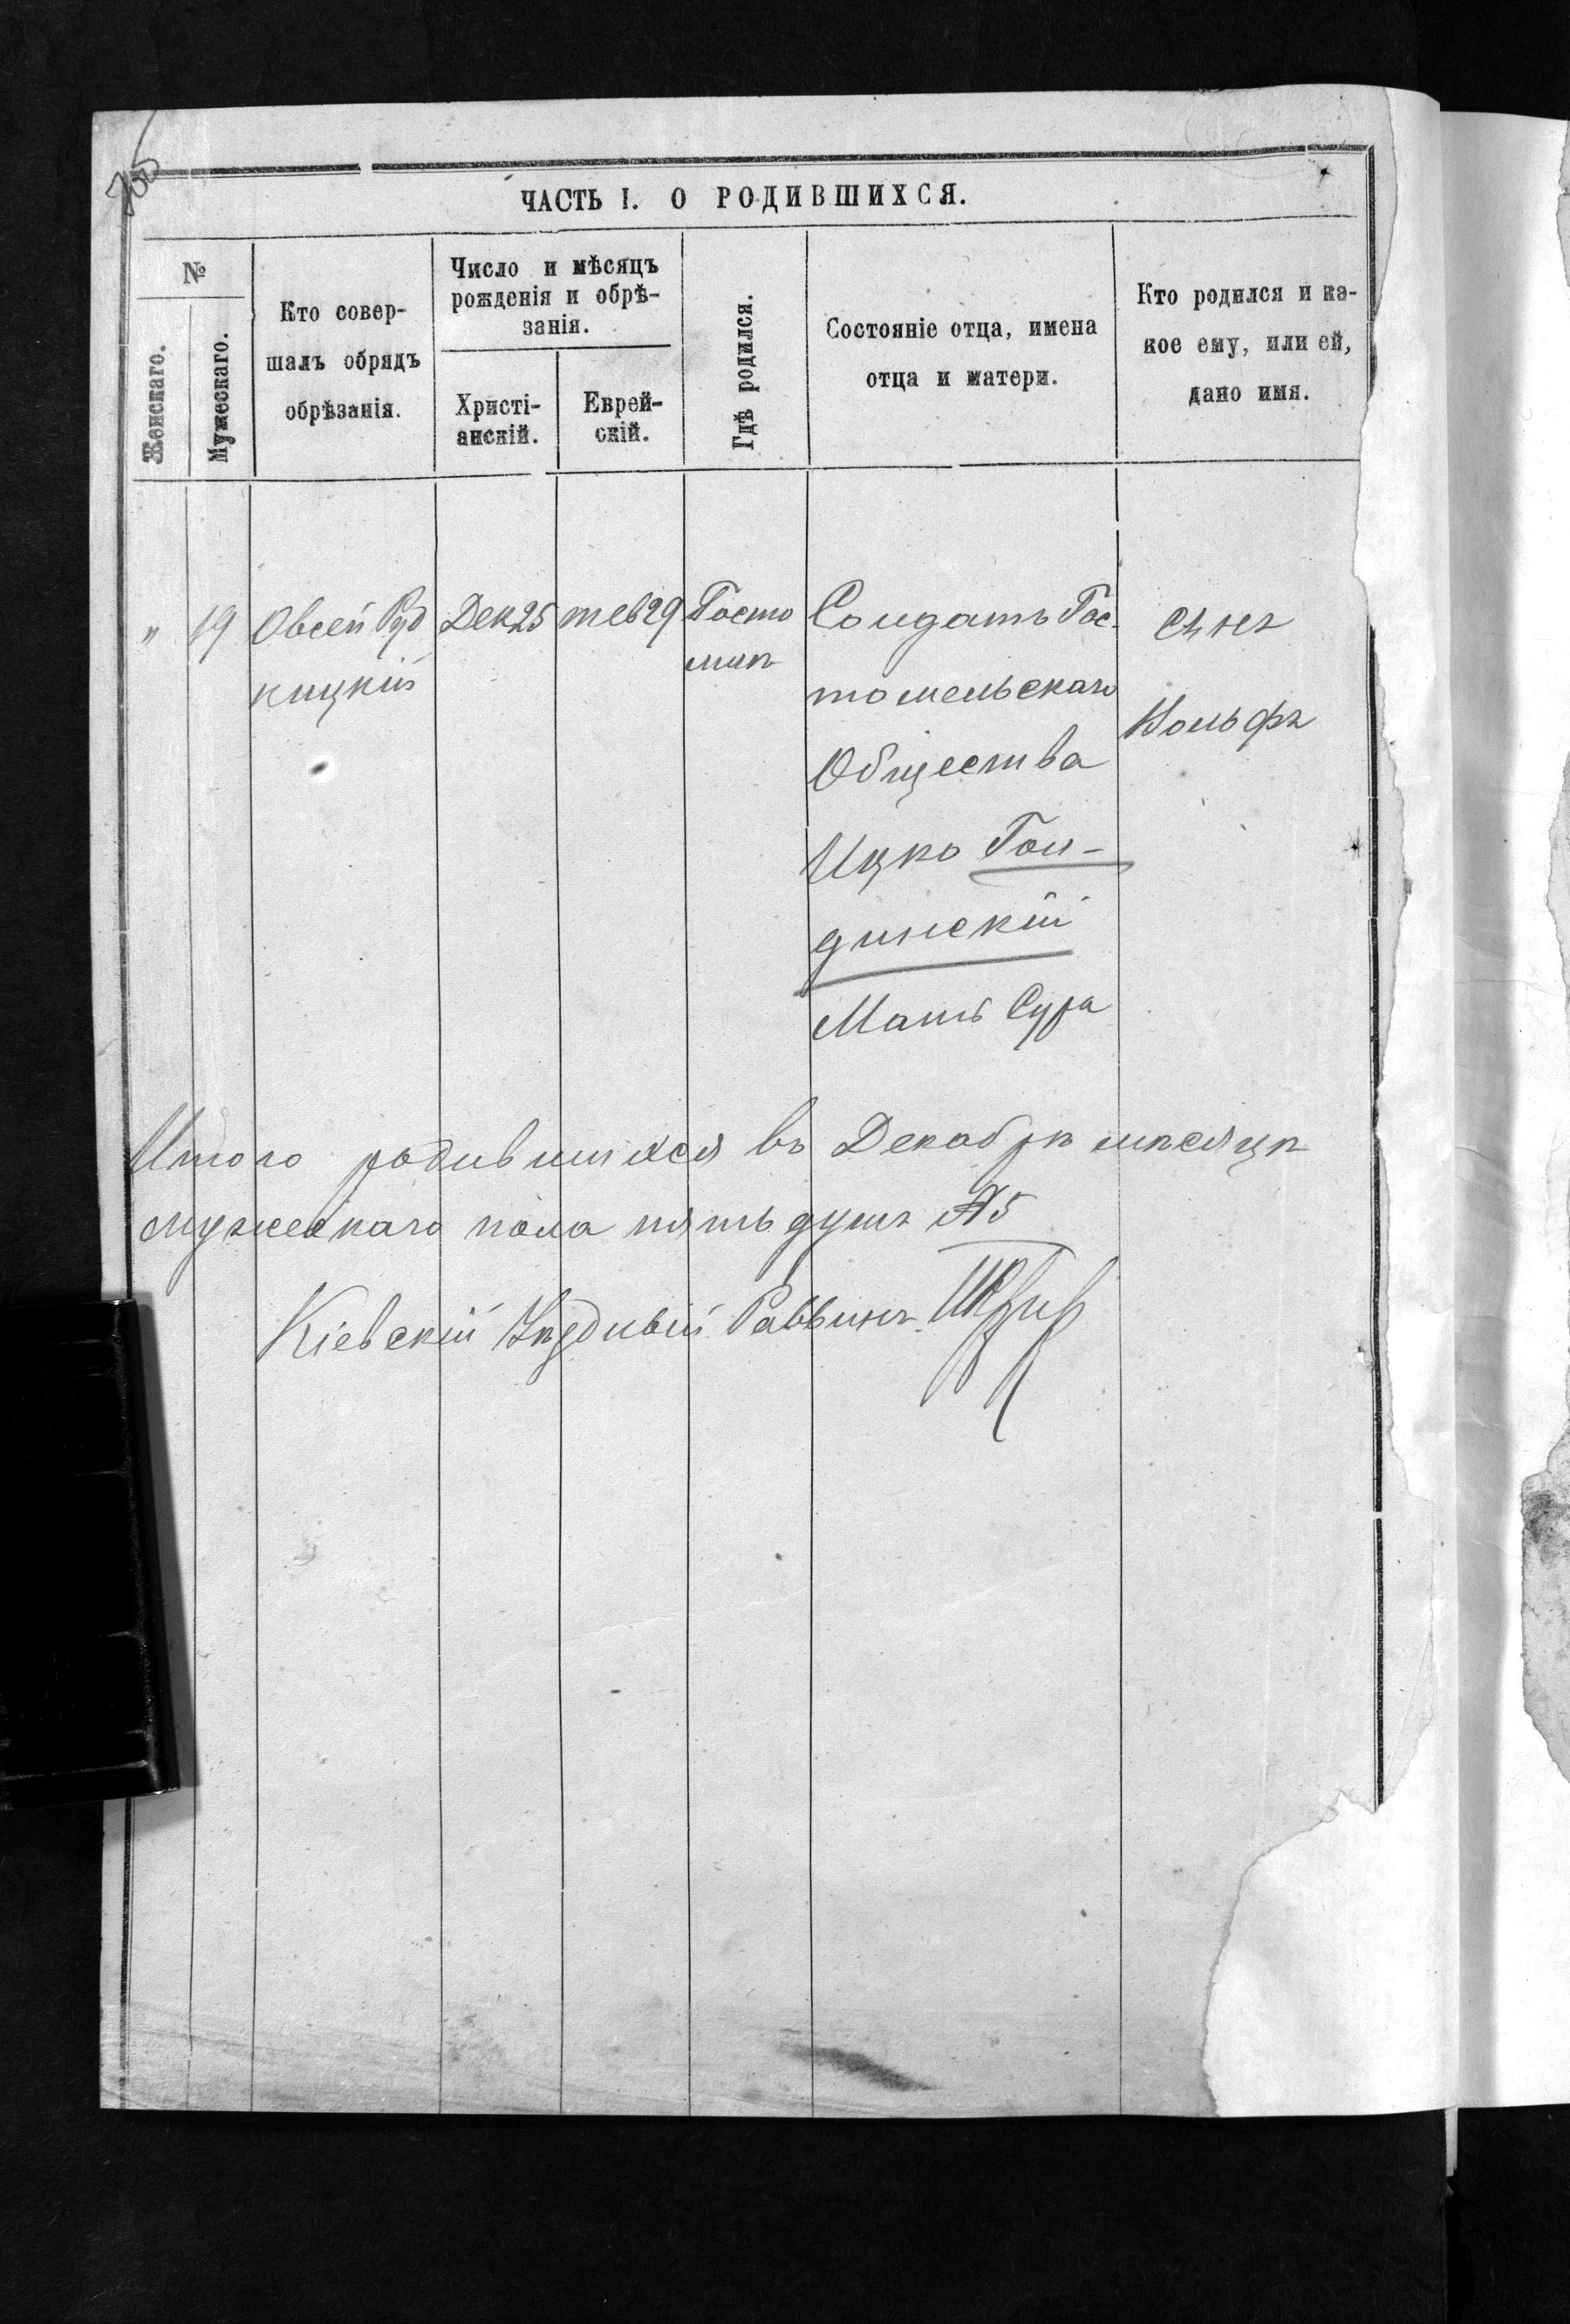 ЧАСТЬ I. О РОДИВШИХСЯ.
№
Женскаго.
Мужескаго.
Кто совер-
шалъ обрядъ
обрѣзанія.
Число и мѣсяцъ
рожденія и обрѣ-
занія.
Христі-
анскій.
Еврей-
скій.
Гдѣ родился.
Состояніе отца, имена
отца и матери.
Кто родился и ка-
кое ему, или ей,
дано имя.
"
19
Овсей Руд
ницкій
Дек 25
тев 29
Госто
мль
Солдатъ Гос-
томельскаго
Общества
Ицко Гол-
динскій
Мать Сура
Сынъ
Вольфъ
Итого родившихся въ Декабрѣ мѣсяцѣ
мужескаго пола пять душъ № 5
Кіевскій Уѣздный Раввинъ